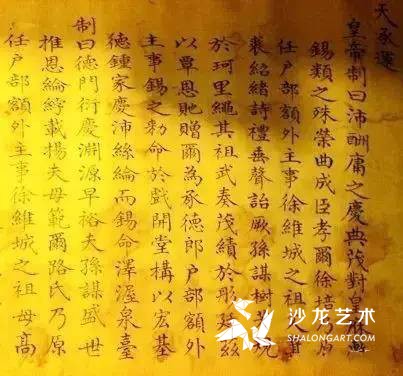 天承運
皇帝制曰沛酬庸之慶典茂對皇
錫類之殊榮曲成臣孝爾徐培乃原
任户部額外主事徐維城之祖父
裘紹緒詩禮垂聲詒厥孫謀樹芳規
於珂里繩其祖武奏茂績於彤廷兹
以覃恩貤贈爾為承德郎户部額外
主事錫之勅命於戲開堂構以宏基
德鍾家慶沛絲綸而錫命澤渥泉臺
制曰德門衍慶淵源早裕夫孫謀盛世
推恩綸綍載揚夫母範爾路氏乃原
任户部額外主事徐維城之祖母高
沙龙艺术
SHALONGART.COM